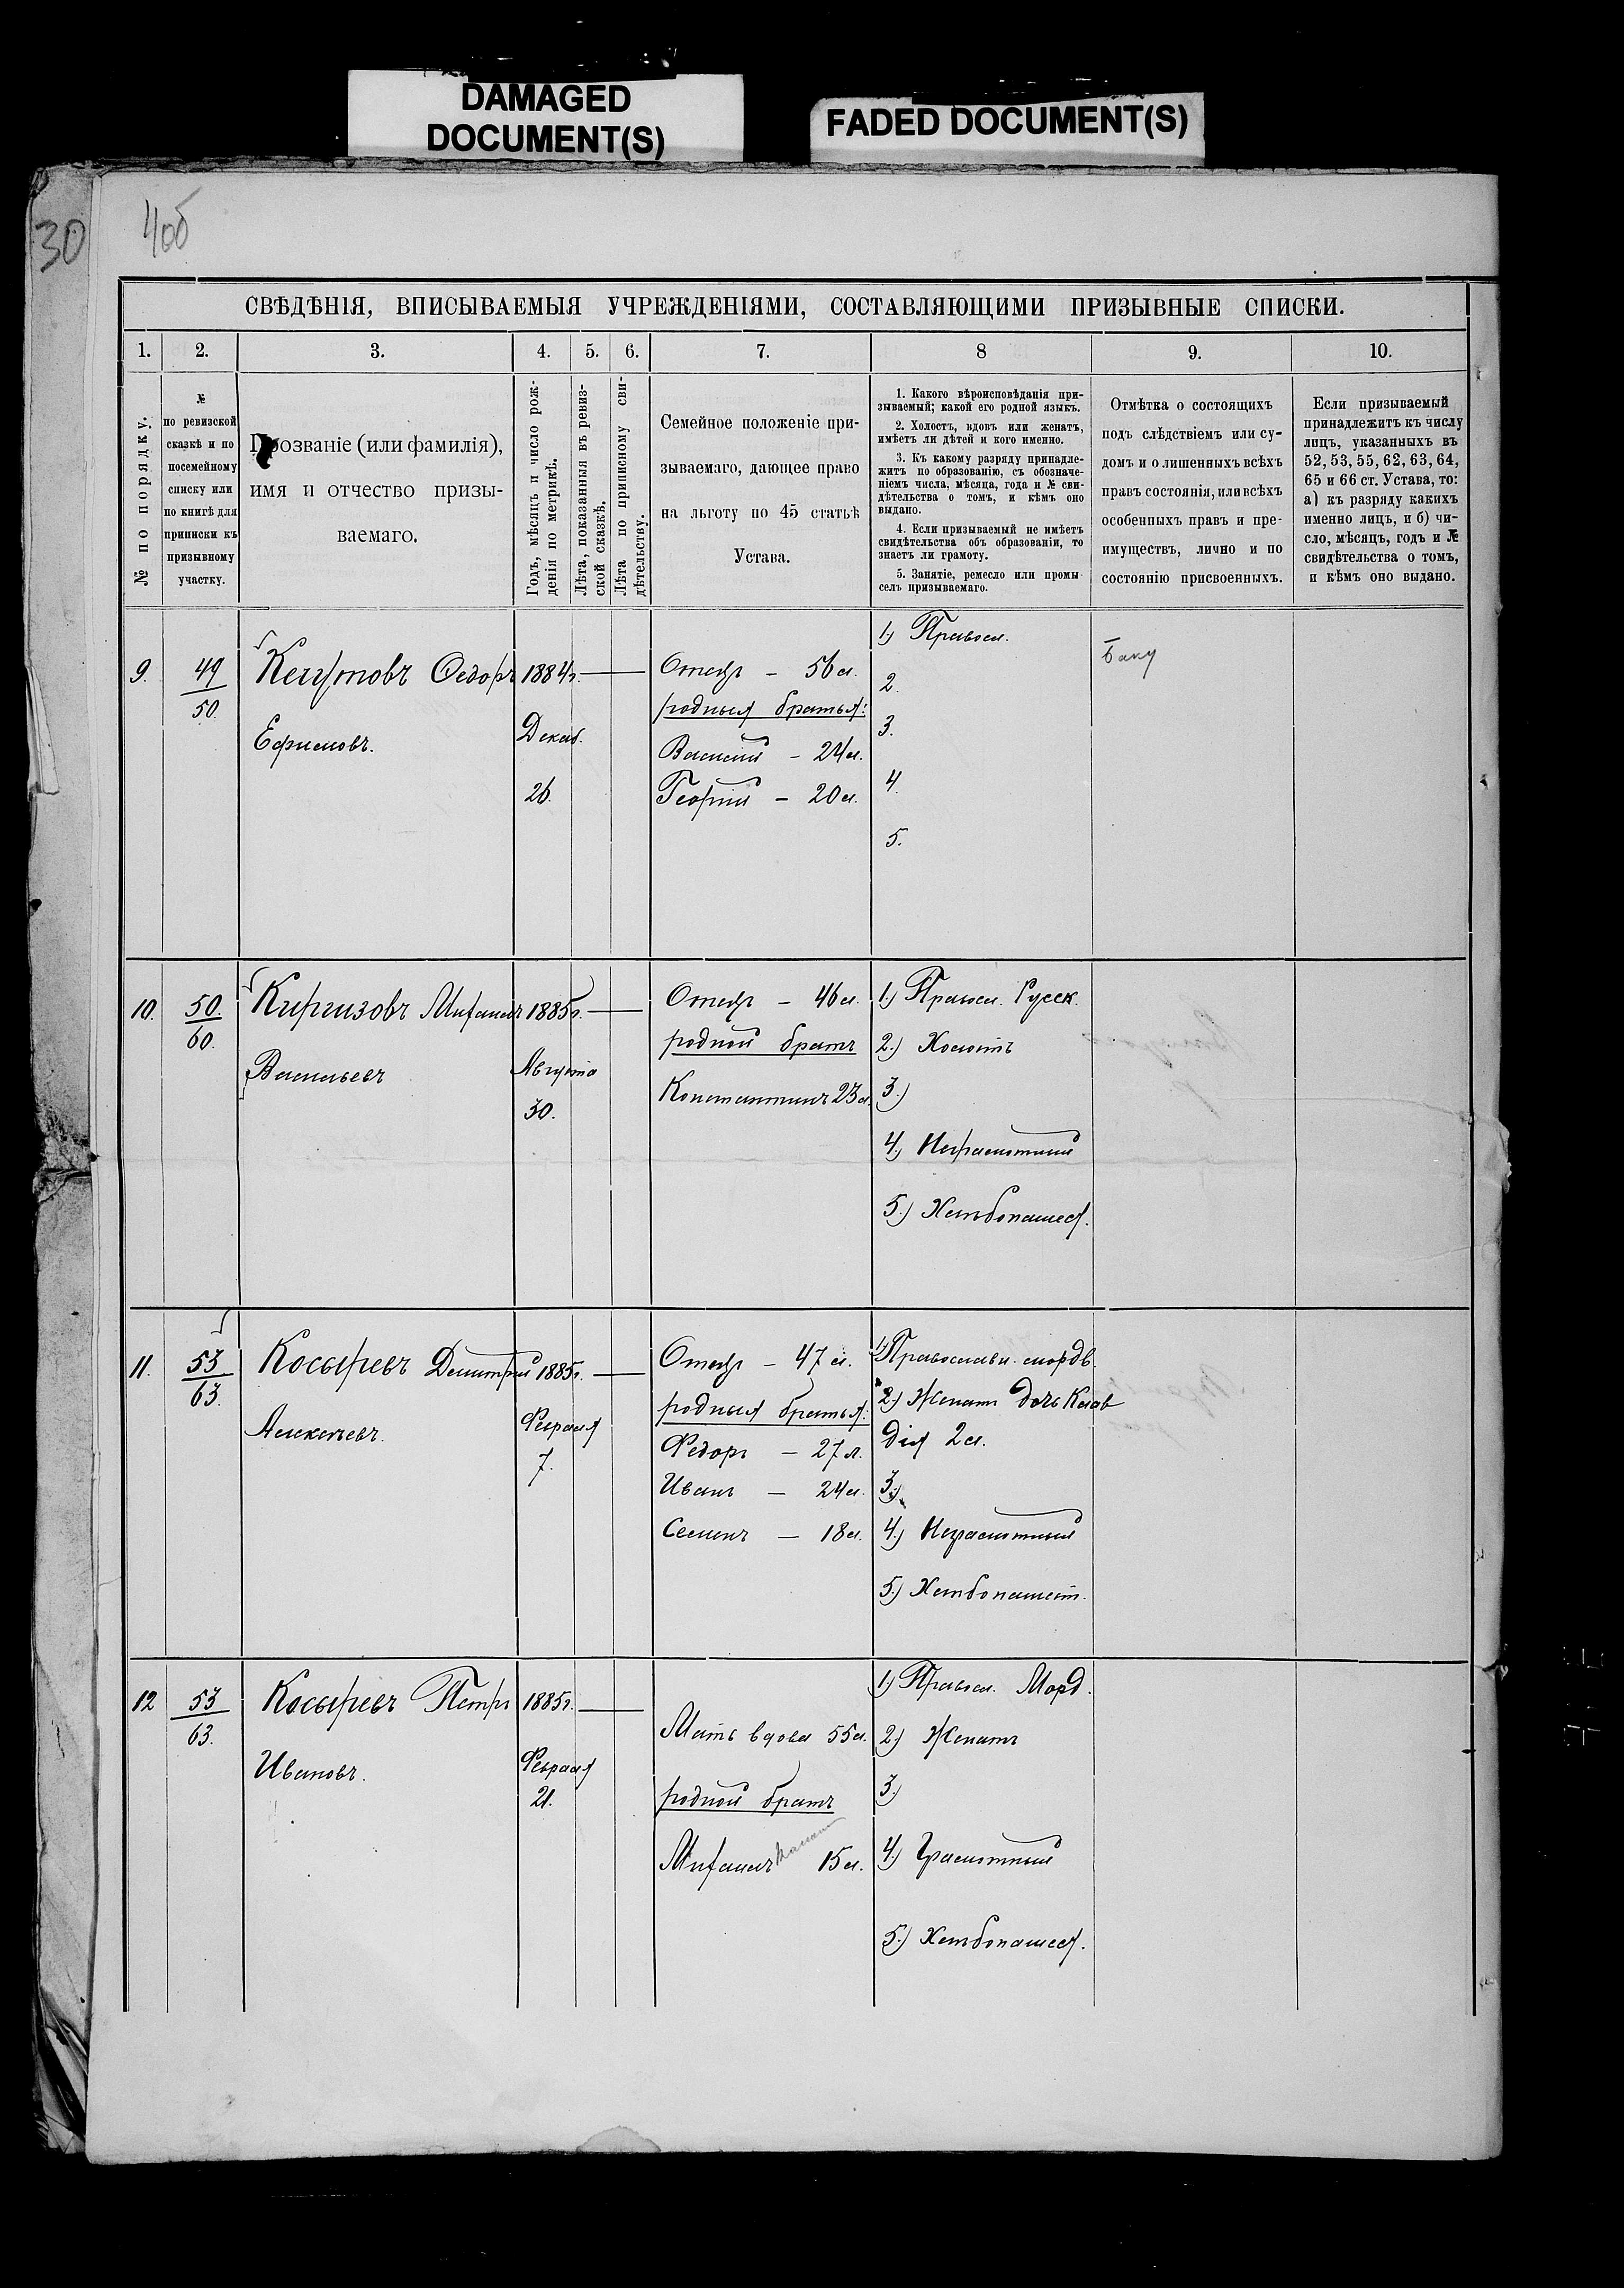 DAMAGED
DOCUMENT(S)
FADED DOCUMENT(S)
30
4об
СВѢДѢНІЯ, ВПИСЫВАЕМЫЯ УЧРЕЖДЕНІЯМИ, СОСТАВЛЯЮЩИМИ ПРИЗЫВНЫЕ СПИСКИ.
1. 2. 3. 4. 5. 6. 7. 8 9. 10.
№ по порядку.
№
по ревизской
сказкѣ и по
посемейному
списку или
по книгѣ для
приписки къ
призывному
участку.
Прозваніе (или фамилія),
имя и отчество призы-
ваемаго.
Годъ, мѣсяцъ и число рож-
денія по метрикѣ.
Лѣта, показанныя въ ревиз-
ской сказкѣ.
Лѣта по приписному сви-
дѣтельству.
Семейное положеніе при-
зываемаго, дающее право
на льготу по 45 статьѣ
Устава.
1. Какого вѣроисповѣданія при-
зываемый; какой его родной языкъ.
2. Холостъ, вдовъ или женатъ,
имѣетъ ли дѣтей и кого именно.
3. Къ какому разряду принадле-
житъ по образованію, съ обозначе-
ніемъ числа, мѣсяца, года и № сви-
дѣтельства о томъ, и кѣмъ оно
выдано.
4. Если призываемый не имѣетъ
свидѣтельства объ образованіи, то
знаетъ ли грамоту.
5. Занятіе, ремесло или промы-
селъ призываемаго.
Отмѣтка о состоящихъ
подъ слѣдствіемъ или су-
домъ и о лишенныхъ всѣхъ
правъ состоянія, или всѣхъ
особенныхъ правъ и пре-
имуществъ, лично и по
состоянію присвоенныхъ.
Если призываемый
принадлежитъ къ числу
лицъ, указанныхъ въ
52, 53, 55, 62, 63, 64,
65 и 66 ст. Устава, то:
а) къ разряду какихъ
именно лицъ, и б) чи-
сло, мѣсяцъ, годъ и №
свидѣтельства о томъ,
и кѣмъ оно выдано.
9.
49
50.
Ѳедоръ
Ефимовъ.
1884г.
Декаб.
26.
Отецъ – 56 л.
родныя братья:
Василій – 24 л.
Георгій – 20 л.
1) Правосл.
2.
3.
4.
5.
Баку
10.
50.
60.
Киргизовъ Михаилъ
Васильевъ
1885г.
Августа
30.
Отецъ – 46 л.
родной братъ
Константинъ 23 л.
1.) Правосл. Русск.
2.) Холостъ
3.)
4.) Неграмотный
5.) Хлѣбопашец.
11.
53
63.
Косыревъ Димитрій
Алексѣевъ.
1885г.
Февраля
7.
Отецъ – 47 л.
родныя братья:
Федоръ – 27 л.
Иванъ – 24 л.
Семенъ – 18 л.
1) Православн. мордв.
2.) Женат дочь Клав
дія 2 л.
3.)
4.) Неграмотный
5.) Хлѣбопашест.
12
53
63.
Косыревъ Петръ
Ивановъ.
1885г.
Февраля
21.
Мать вдова 55 л.
родной братъ
Михаилъ 15 л.
1) Правосл. Морд.
2.) Женатъ
3.)
4.) Грамотный
5.) Хлѣбопашец.